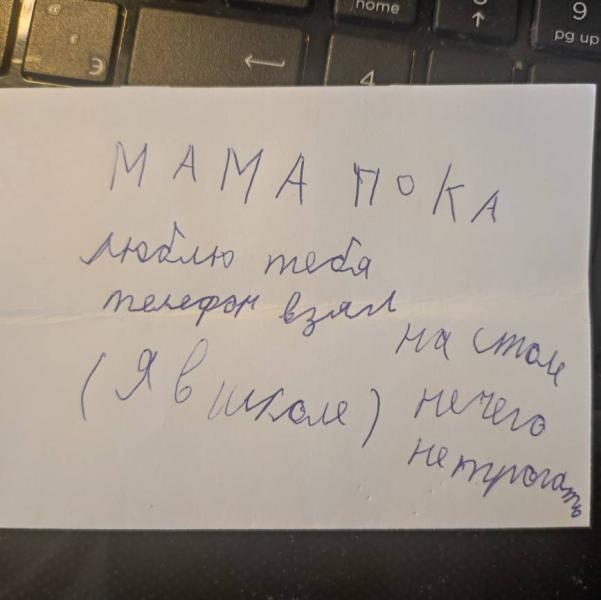 home
9
pg up
Э
4
МАМА ПОКА
люблю тебя
телефон взял
(Я в школе)
на столе
нечего
не трогать